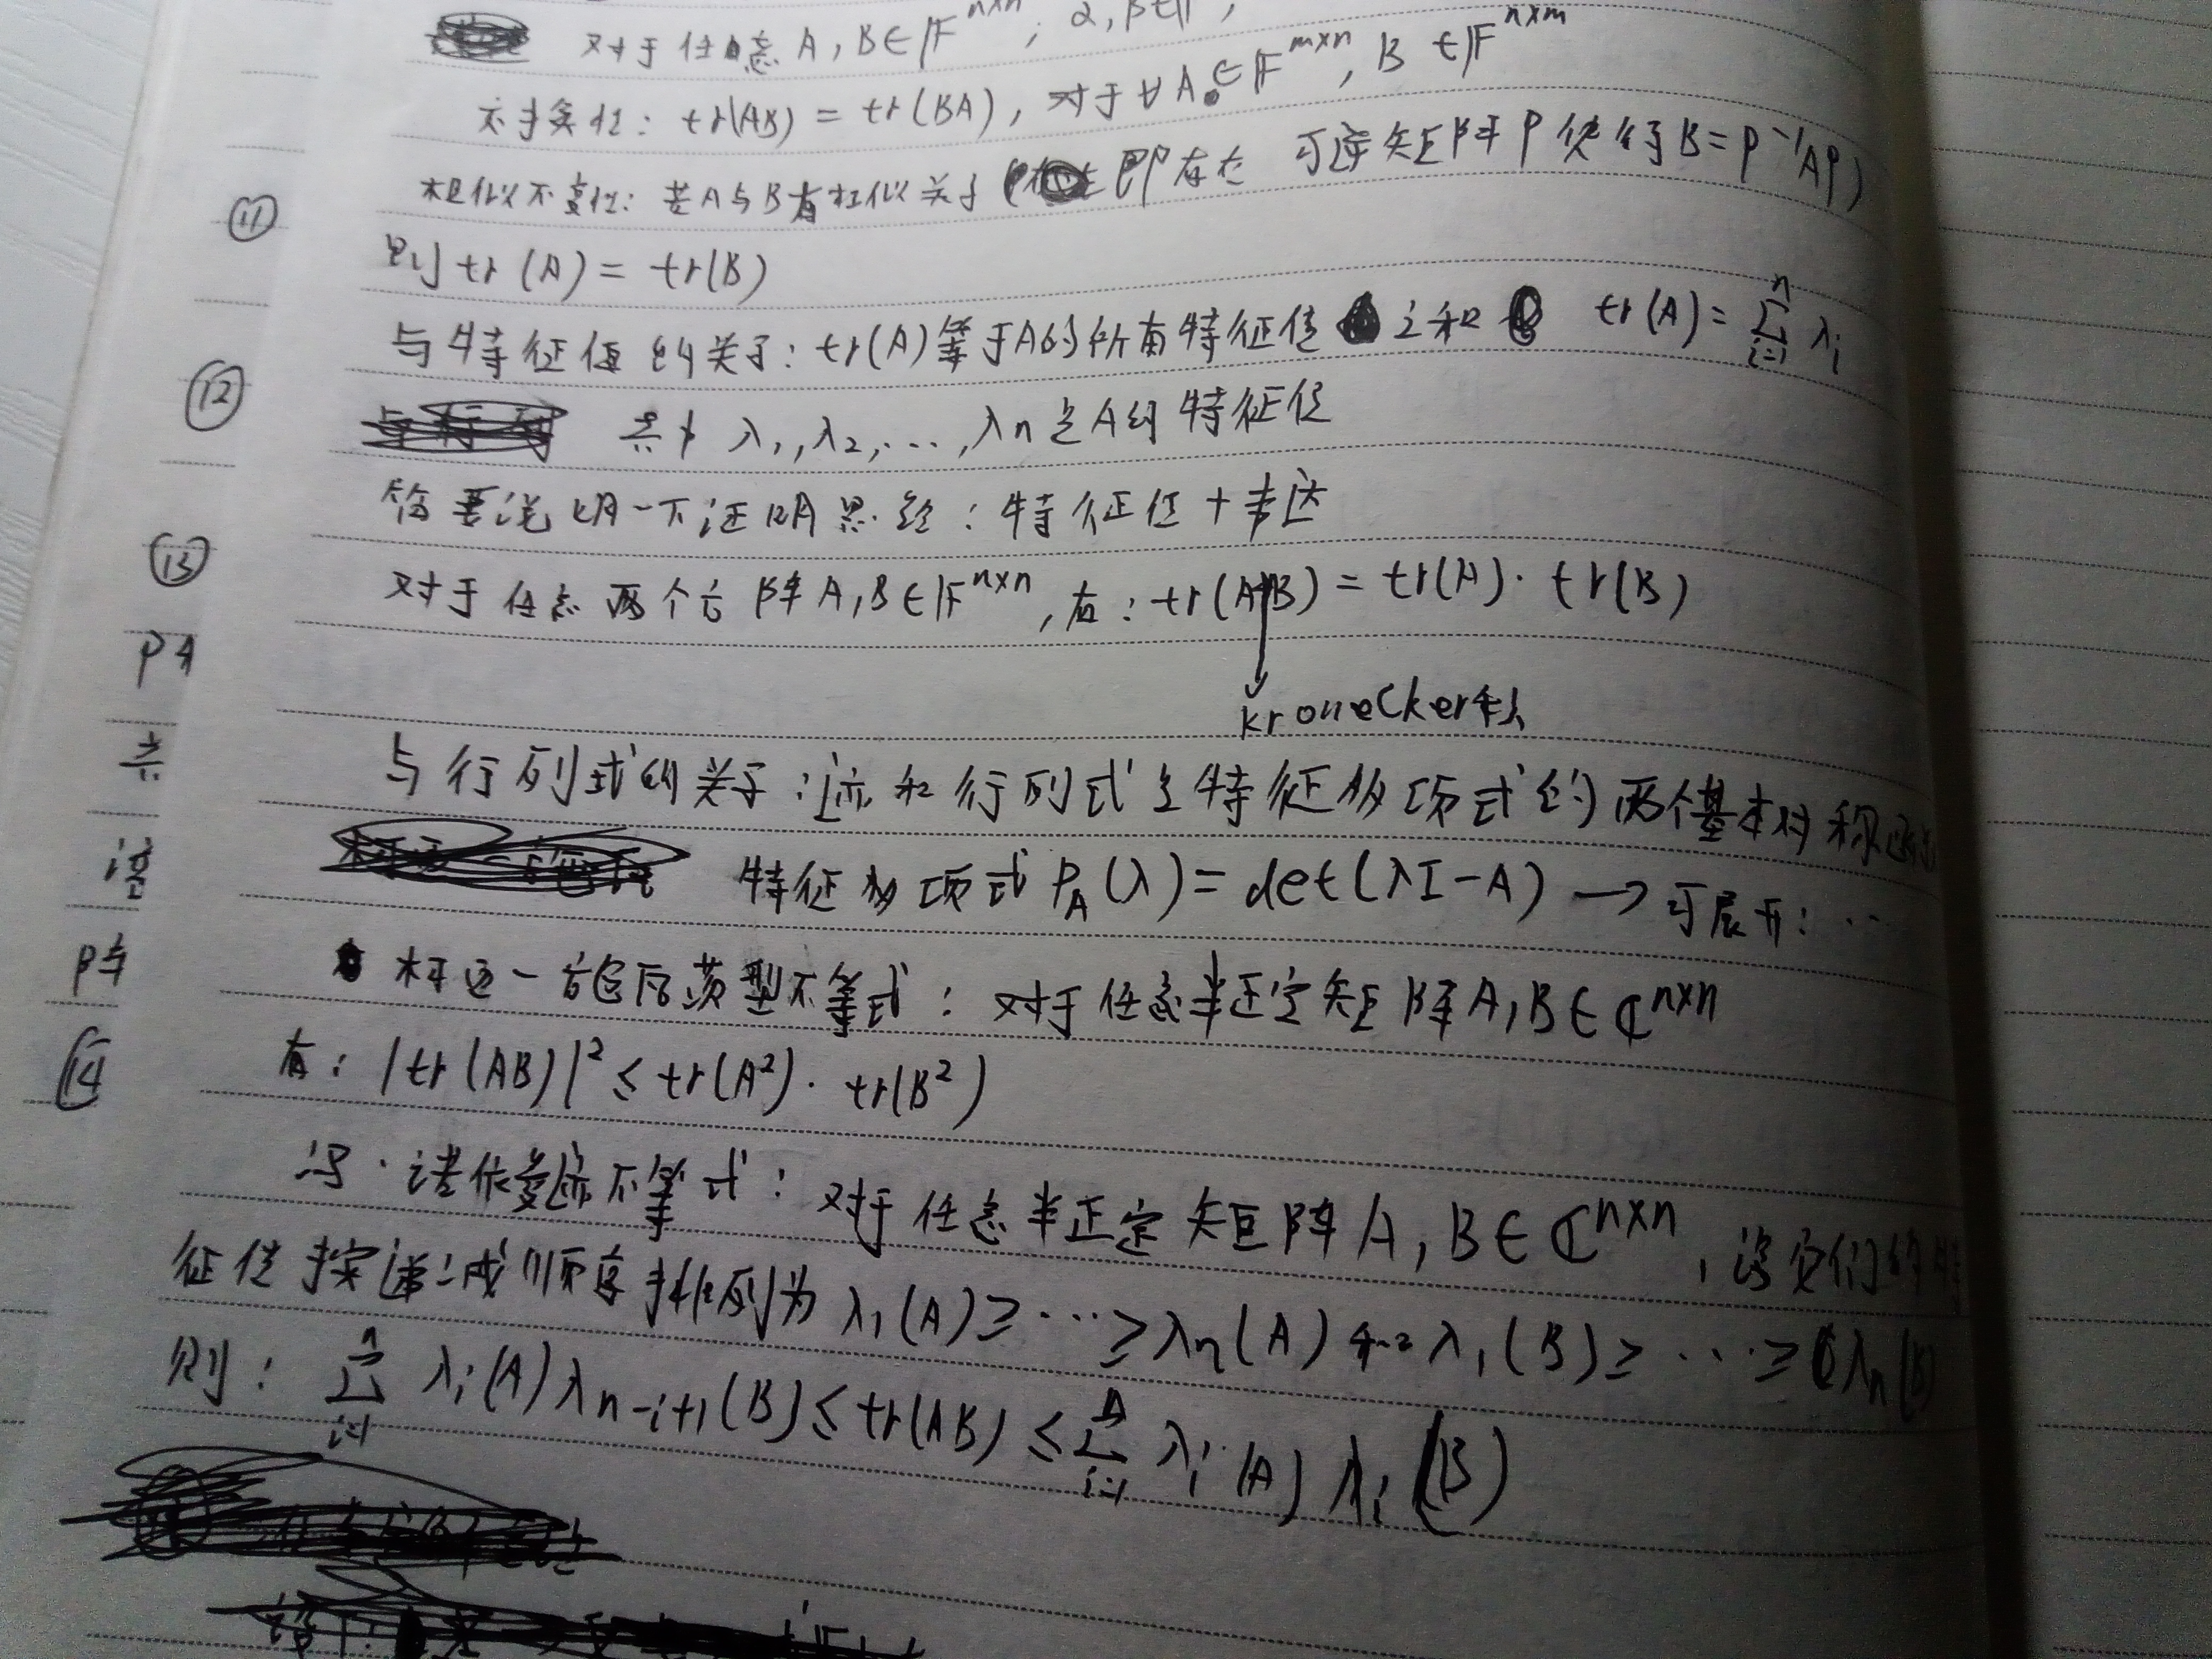 对于任意 A, B ∈ F^{n×n}, α, β ∈ F,
tr(AB) = tr(BA), 对于 ∀A ∈ F^{m×n}, B ∈ F^{n×m}
⑪ 相似不变性: 若A与B有相似关于 ( 即存在 可逆矩阵P使得B=P^{-1}AP)
则 tr(A) = tr(B)
与特征值的关于: tr(A)等于A的所有特征值之和 tr(A) = \sum_{i=1}^{n} λ_i
⑫ 其中 λ_1, λ_2, ..., λ_n 是A的特征值
简要说明一下证明思路: 特征值+韦达
⑬ 对于任意两个方阵A, B ∈ F^{n×n}, 有: tr(A⊗B) = tr(A)·tr(B)
Kronecker积
与行列式的关于: 迹和行列式是特征多项式的两个基本对称函
特征多项式 P_A(λ) = det(λI-A) → 可展开: ...
阵
柯西-施瓦茨型不等式: 对于任意半正定矩阵A, B ∈ C^{n×n}
⑭ 有: |tr(AB)|² ≤ tr(A²)·tr(B²)
冯·诺依曼迹不等式: 对于任意半正定矩阵A, B ∈ C^{n×n}, 设它们的特
征值按递减顺序排列为 λ_1(A) ≥ ... ≥ λ_n(A) 和 λ_1(B) ≥ ... ≥ λ_n(B)
则: \sum_{i=1}^{n} λ_i(A)λ_{n-i+1}(B) ≤ tr(AB) ≤ \sum_{i=1}^{n} λ_i(A)λ_i(B)